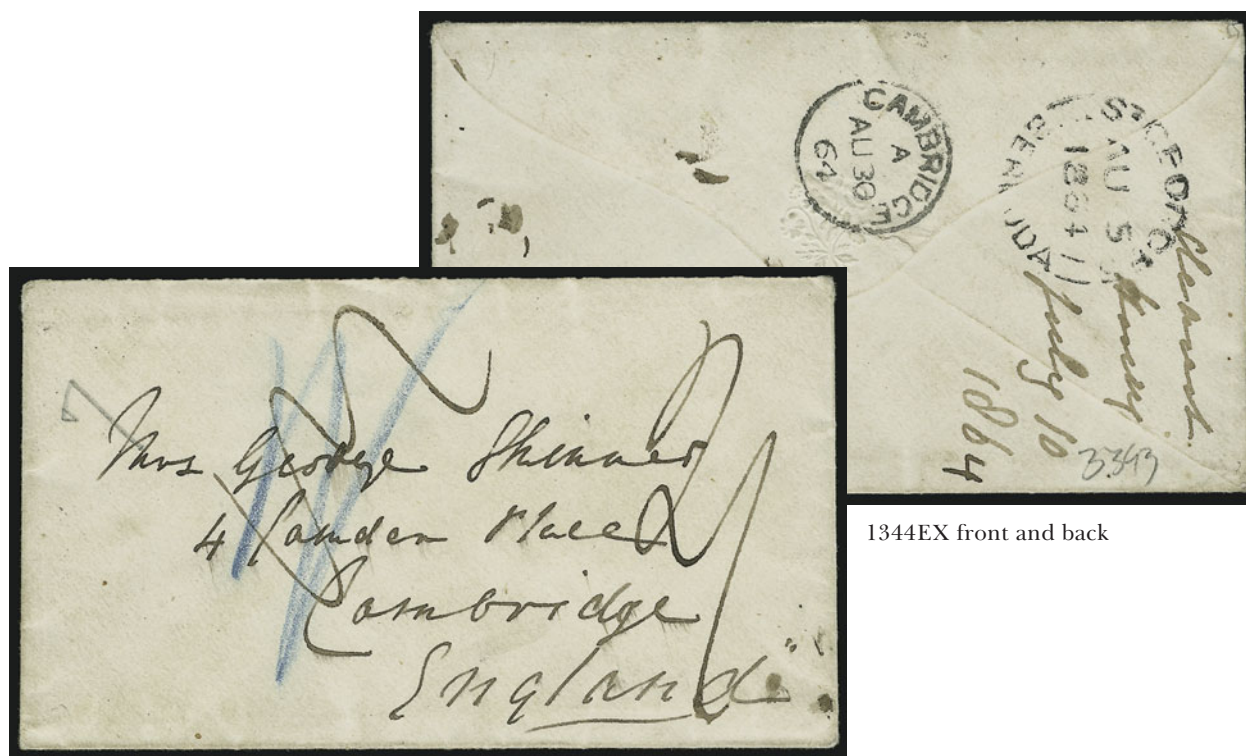 CAMBRIDGE
A
AU 30
64
ST GEORGE
AU 5
1864
BERMUDA
July 10
1864
3393
Mrs George Skinner
4 Camden Place
Cambridge
England
1344EX front and back